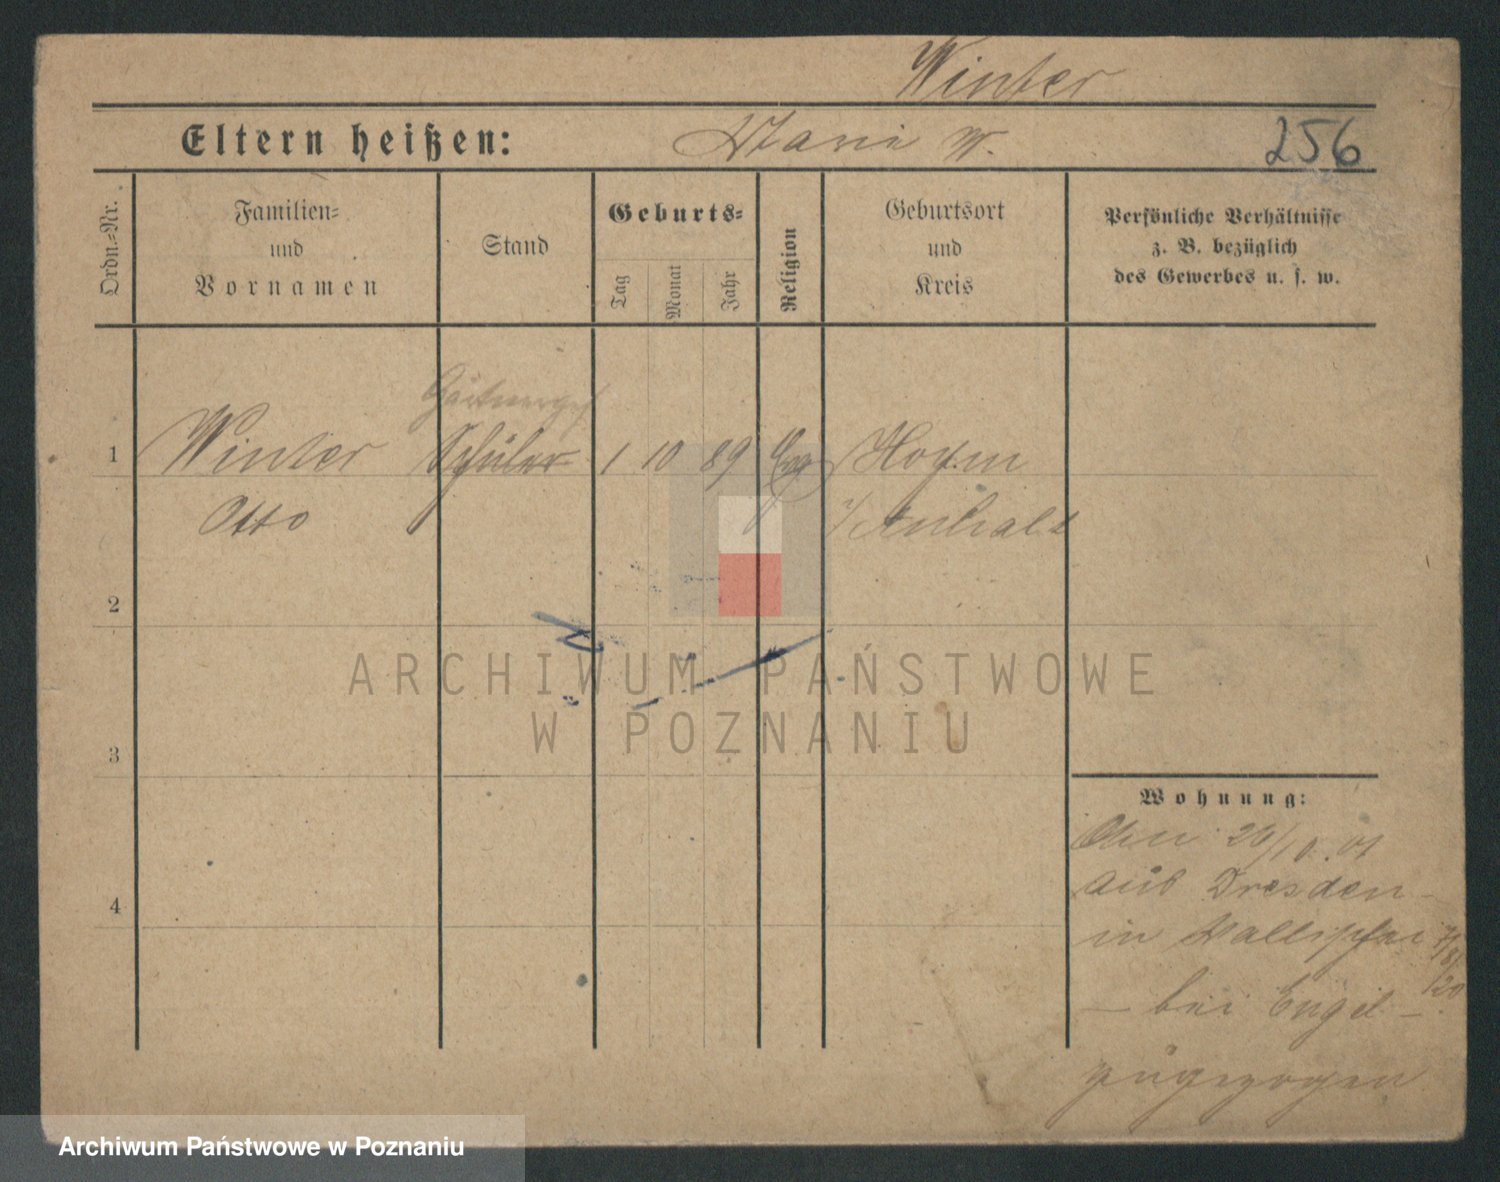 Winter
Eltern heißen:
W.
256
Ordn.=Nr.
Familien=
und
Vornamen
Stand
Geburts=
Tag
Monat
Jahr
Religion
Geburtsort
und
Kreis
Persönliche Verhältnisse
z. B. bezüglich
des Gewerbes u. s. w.
1
Winter
Otto
Schüler
1
10
89
Hoym
i/Anhalt
2
3
4
Wohnung:
26/10.01
aus Dresden
in
7/8/20
— bei Engel —
zugezogen
ARCHIWUM PAŃSTWOWE
W POZNANIU
Archiwum Państwowe w Poznaniu